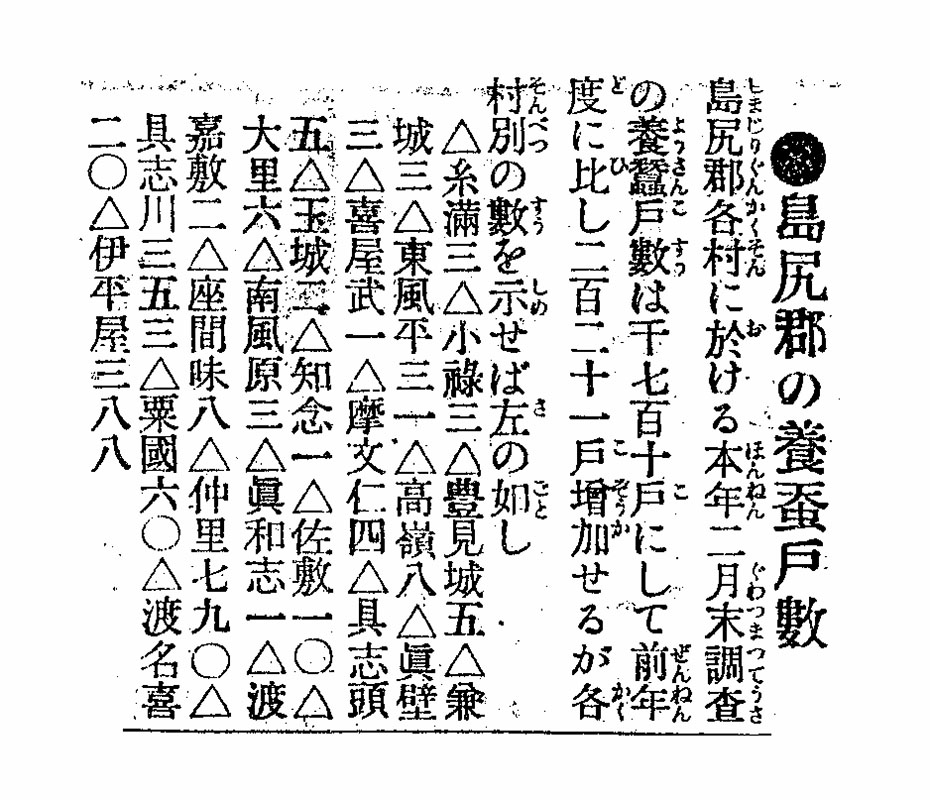 ●島尻郡の養蚕戸數
島尻郡各村に於ける本年二月末調査
の養蠶戸數は千七百十戸にして前年
度に比し二百二十一戸增加せるが各
村別の數を示せば左の如し
△糸滿三△小祿三△豊見城五△兼
城三△東風平三一△高嶺八△眞壁
三△喜屋武一△摩文仁四△具志頭
五△玉城二△知念一△佐敷一〇△
大里六△南風原三△眞和志一△渡
嘉敷二△座間味八△仲里七九〇△
具志川三五三△粟國六〇△渡名喜
二〇△伊平屋三八八